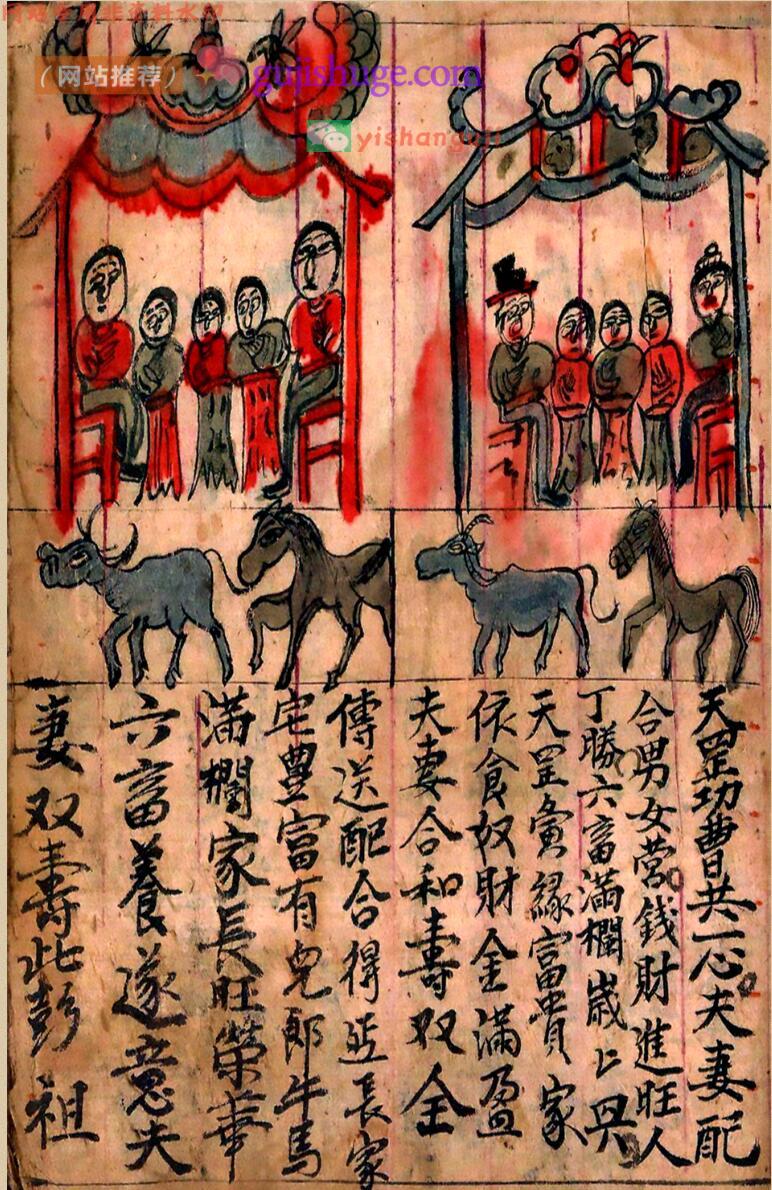 （网站推荐）
gujishuge.com
yishanguji
天罡功曹共一心夫妻配
合男女营錢財進旺人
丁勝六畜滿欄歲上興
天罡夤緣富貴家
依食奴財金滿盈
夫妻合和壽双全
傳送配合得延長家
宅豐富有兒郎牛馬
滿欄家長旺榮華
六畜養遂意夫
妻双壽此彭祖